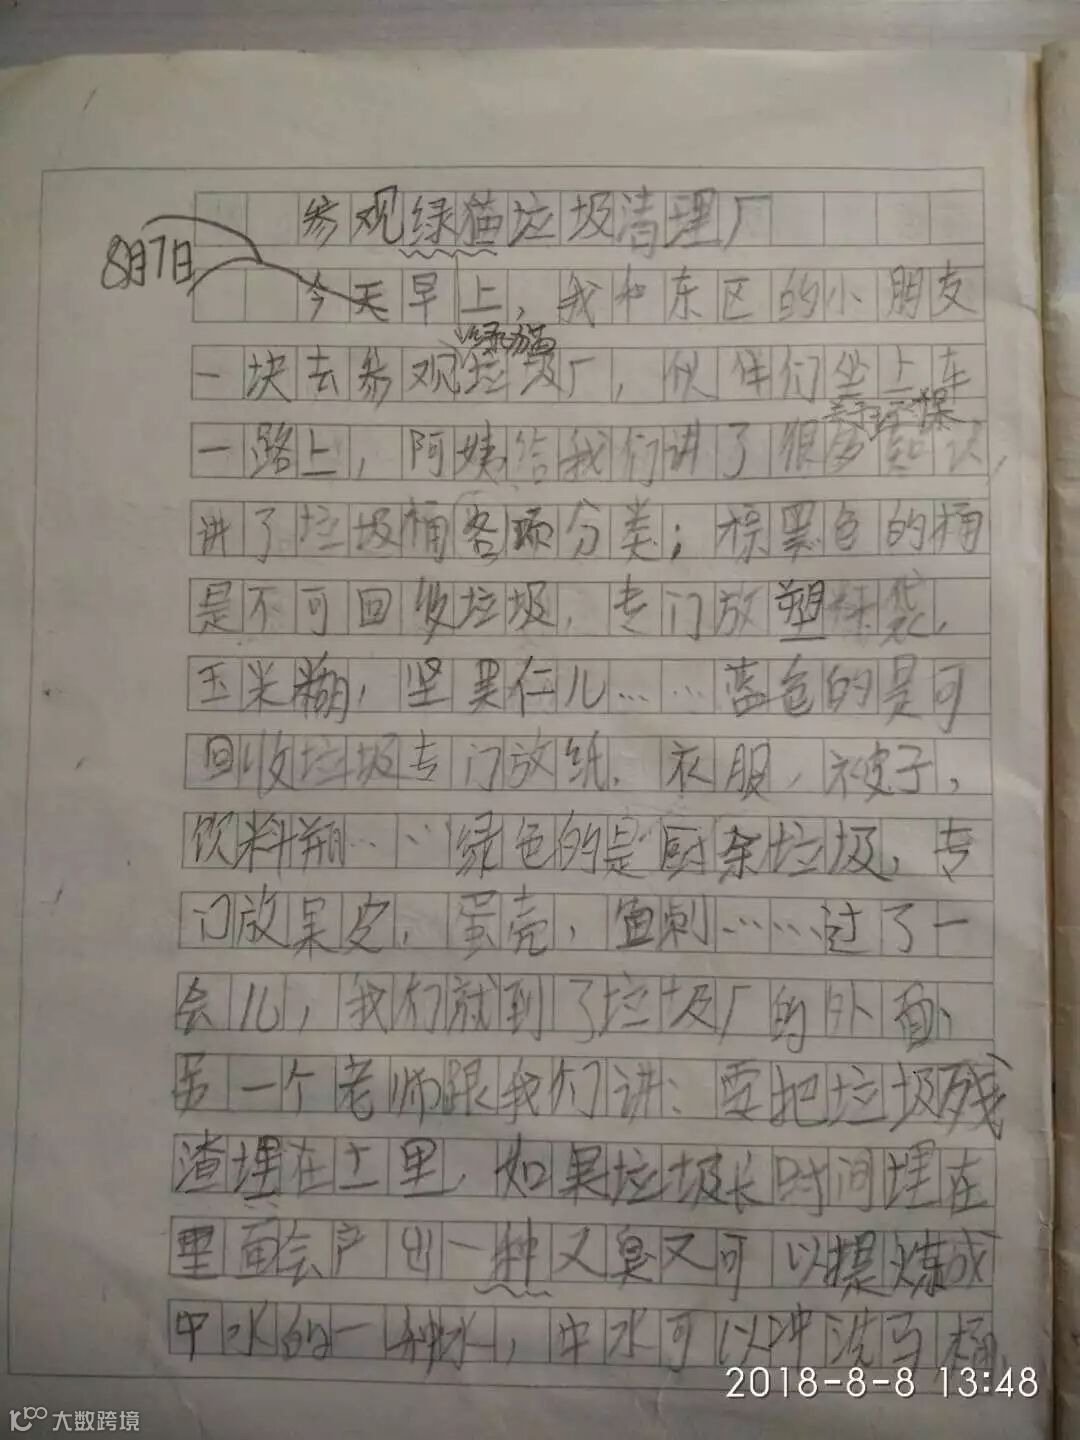 参观绿猫垃圾清理厂
8月7日
今天早上，我和东区的小朋友
绿猫
一块去参观垃圾厂，伙伴们坐上车
关于环保
一路上，阿姨给我们讲了很多知识，
讲了垃圾桶各项分类；标黑色的桶
是不可回收垃圾，专门放塑袋，
玉米糊，坚果仁儿……蓝色的是可
回收垃圾专门放纸、衣服，被子，
饮料瓶……绿色的是厨余垃圾，专
门放果皮，蛋壳，鱼刺……过了一
会儿，我们就到了垃圾厂的外面、
另一个老师跟我们讲：要把垃圾残
渣埋在土里，如果垃圾长时间埋在
里面会产出一种又臭又可以提炼成
中水的一种水，中水可以冲洗马桶，
2018-8-8 13:48
大数跨境